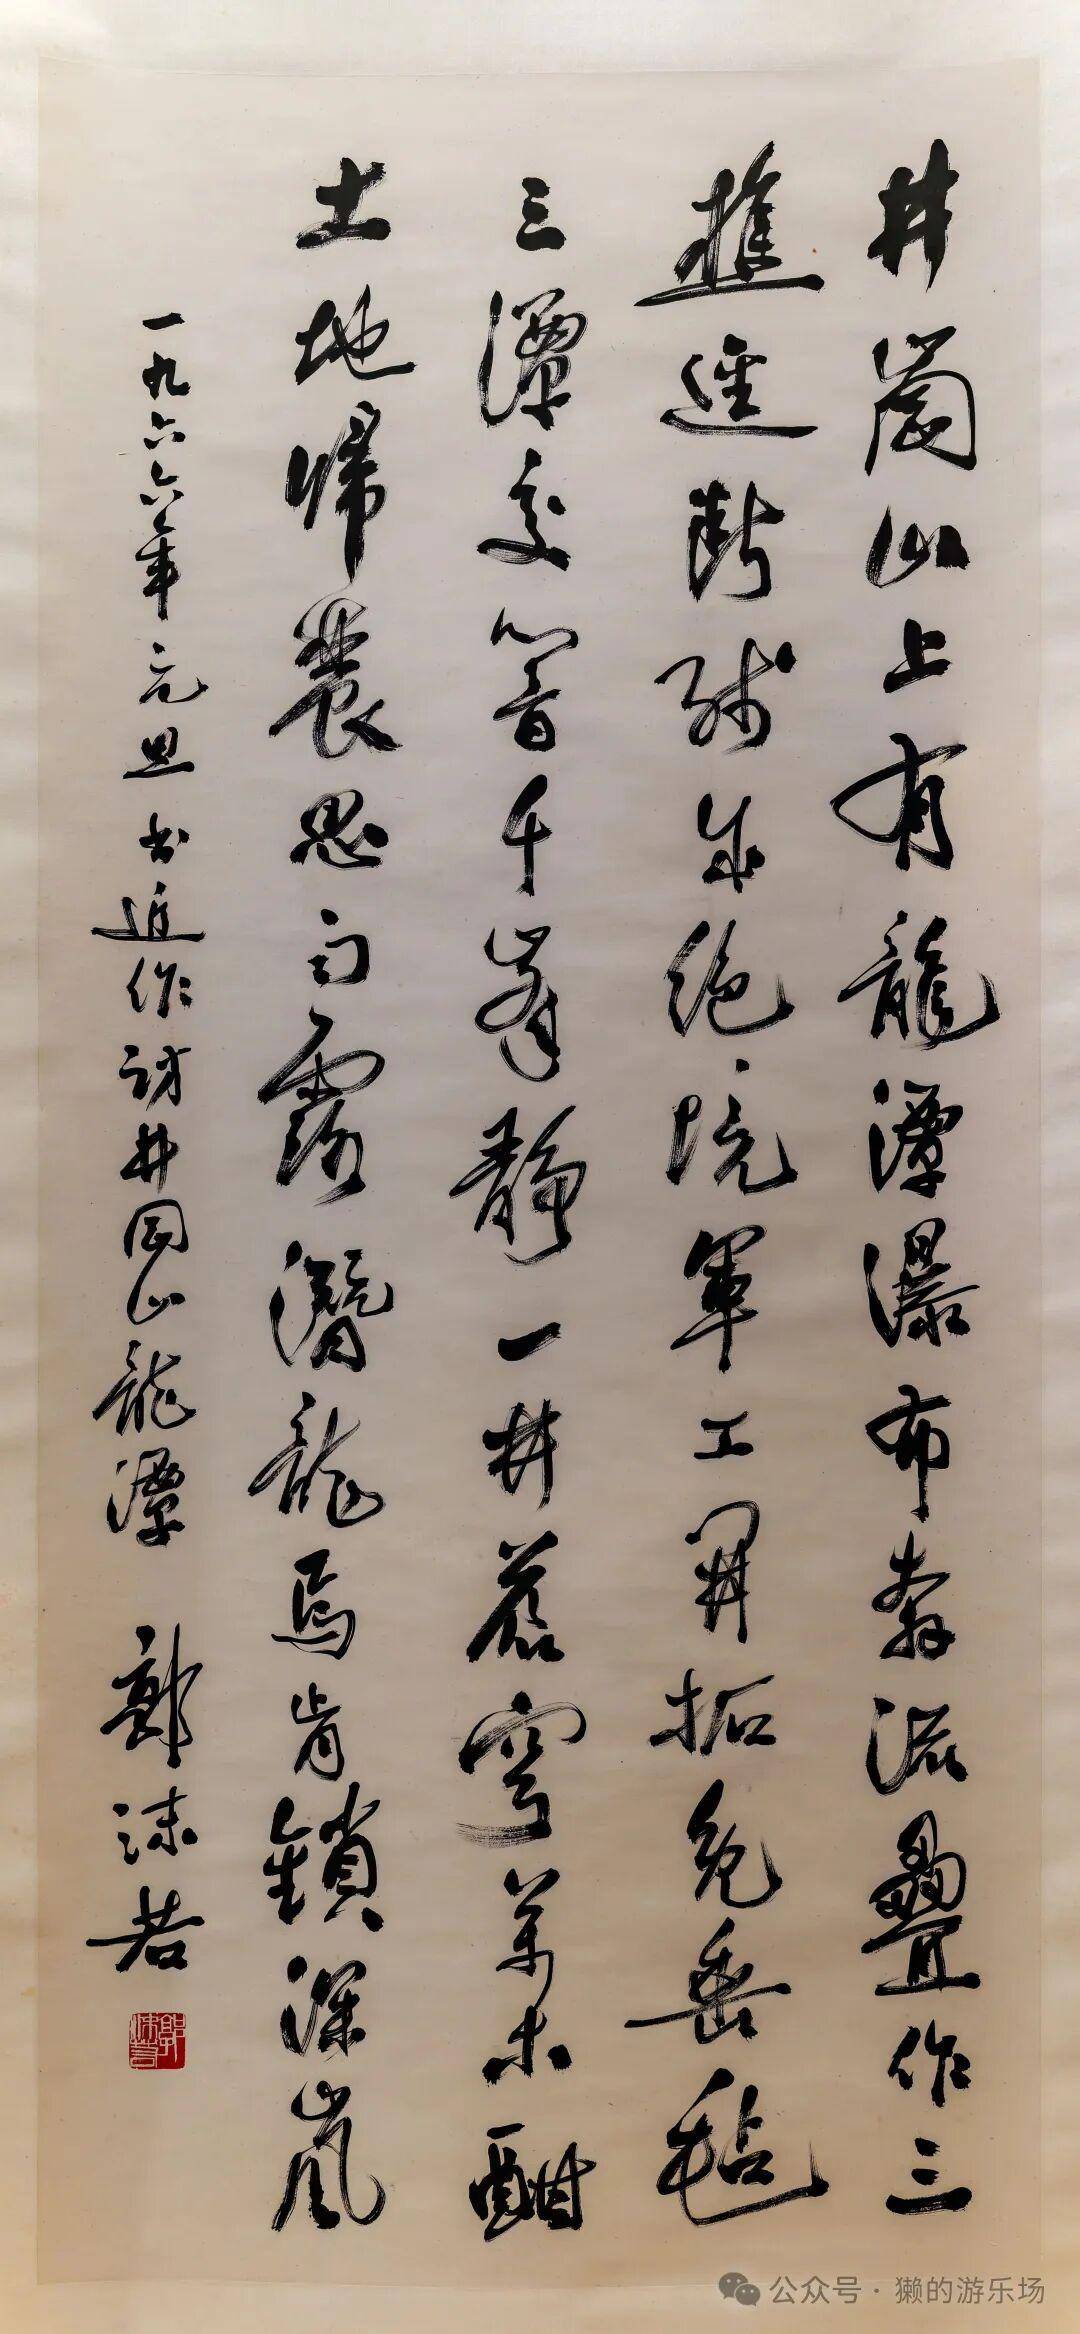 井崗山上有龍潭瀑布奔流疊作三
樵逕斷殘成絕境軍工開拓免垂毡
三潭交響千峯靜一井蒼穹萬木酣
土地歸農思雨露潛龍焉肯鎖深嵐
一九六六年元旦书近作訪井岡山龍潭 郭沫若
郭沫若
公众号·獭的游乐场